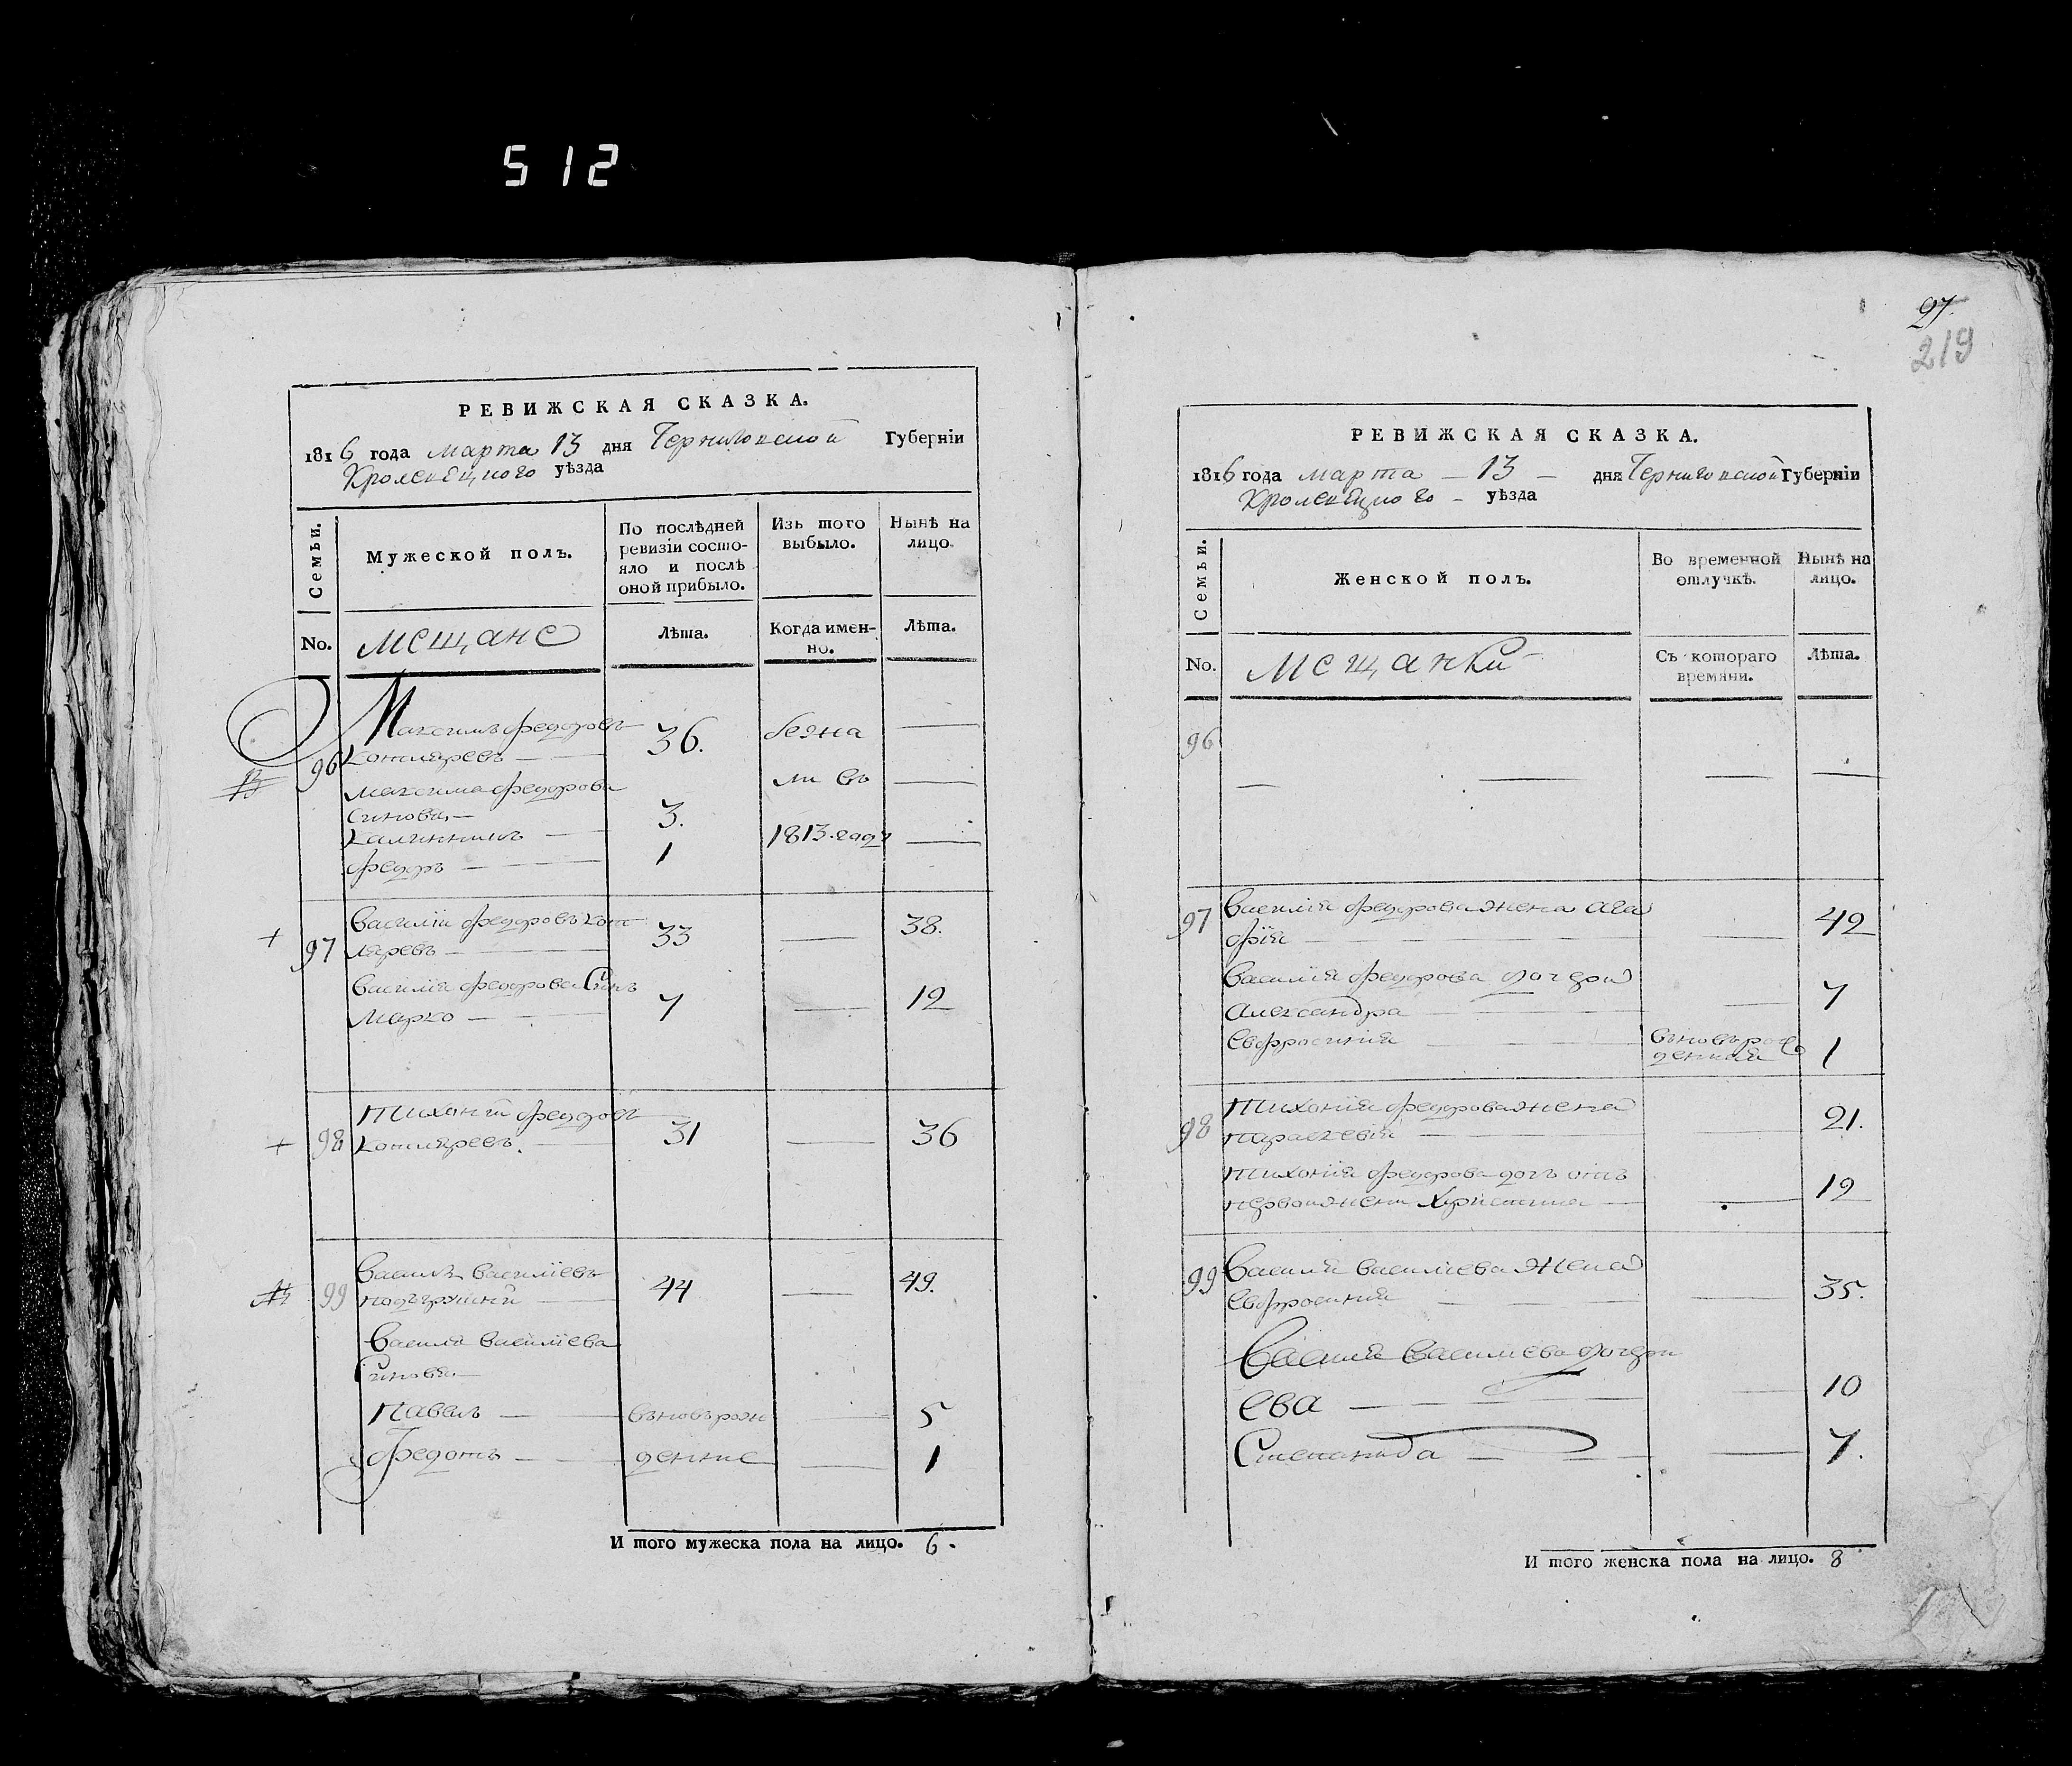 512
РЕВИЖСКАЯ СКАЗКА.
1816 года марта 13 дня Черниговской Губерніи
Кролевецкого уѣзда
Семьи.
Мужеской полъ.
По послѣдней ревизіи состояло и послѣ оной прибыло.
Изъ того выбыло.
Нынѣ на лицо.
No.
мещане
Лѣта.
Когда именно.
Лѣта.
96
Максимъ федоровъ
Котляревъ — 36. бежа —
Максима федорова
синовя, —
Калинникъ — 3. ли въ —
федоръ — 1 1813. году —
97
Василій федоровъ кот
ляревъ — 33 — 38.
Василія федорова Синъ
Марко — 7 — 12
98
Тихоній федоровъ
Котляревъ. 31 — 36
99
Василь Василіевъ
44 — 49.
Василя Василіева
Синовя —
Павелъ — вѣновърож — 5
Федотъ — денніе — 1
И того мужеска пола на лицо. 6.
97.
219
РЕВИЖСКАЯ СКАЗКА.
1816 года марта — 13 — дня Черниговской Губерніи
Кролевецкого — уѣзда
Семьи.
Женской полъ.
Во временной отлучкѣ.
Нынѣ на лицо.
No.
мещанки
Съ котораго времяни.
Лѣта.
96
— — — —
97
Василія федорова жена Ага
фія — — 42
Василія федорова дочери
Александра — — 7
Евфросинія — вѣновърож
денная 1
98
Тихонія федорова жена
Параскевія — — 21.
Тихонія федорова дочъ отъ
первой жени Христина — — 12
99
Василія Василіева Жена
Евфросинія — — 35.
Василія Василіева дочери
Ева — — 10
Степанида — — 7.
И того женска пола на лицо. 8